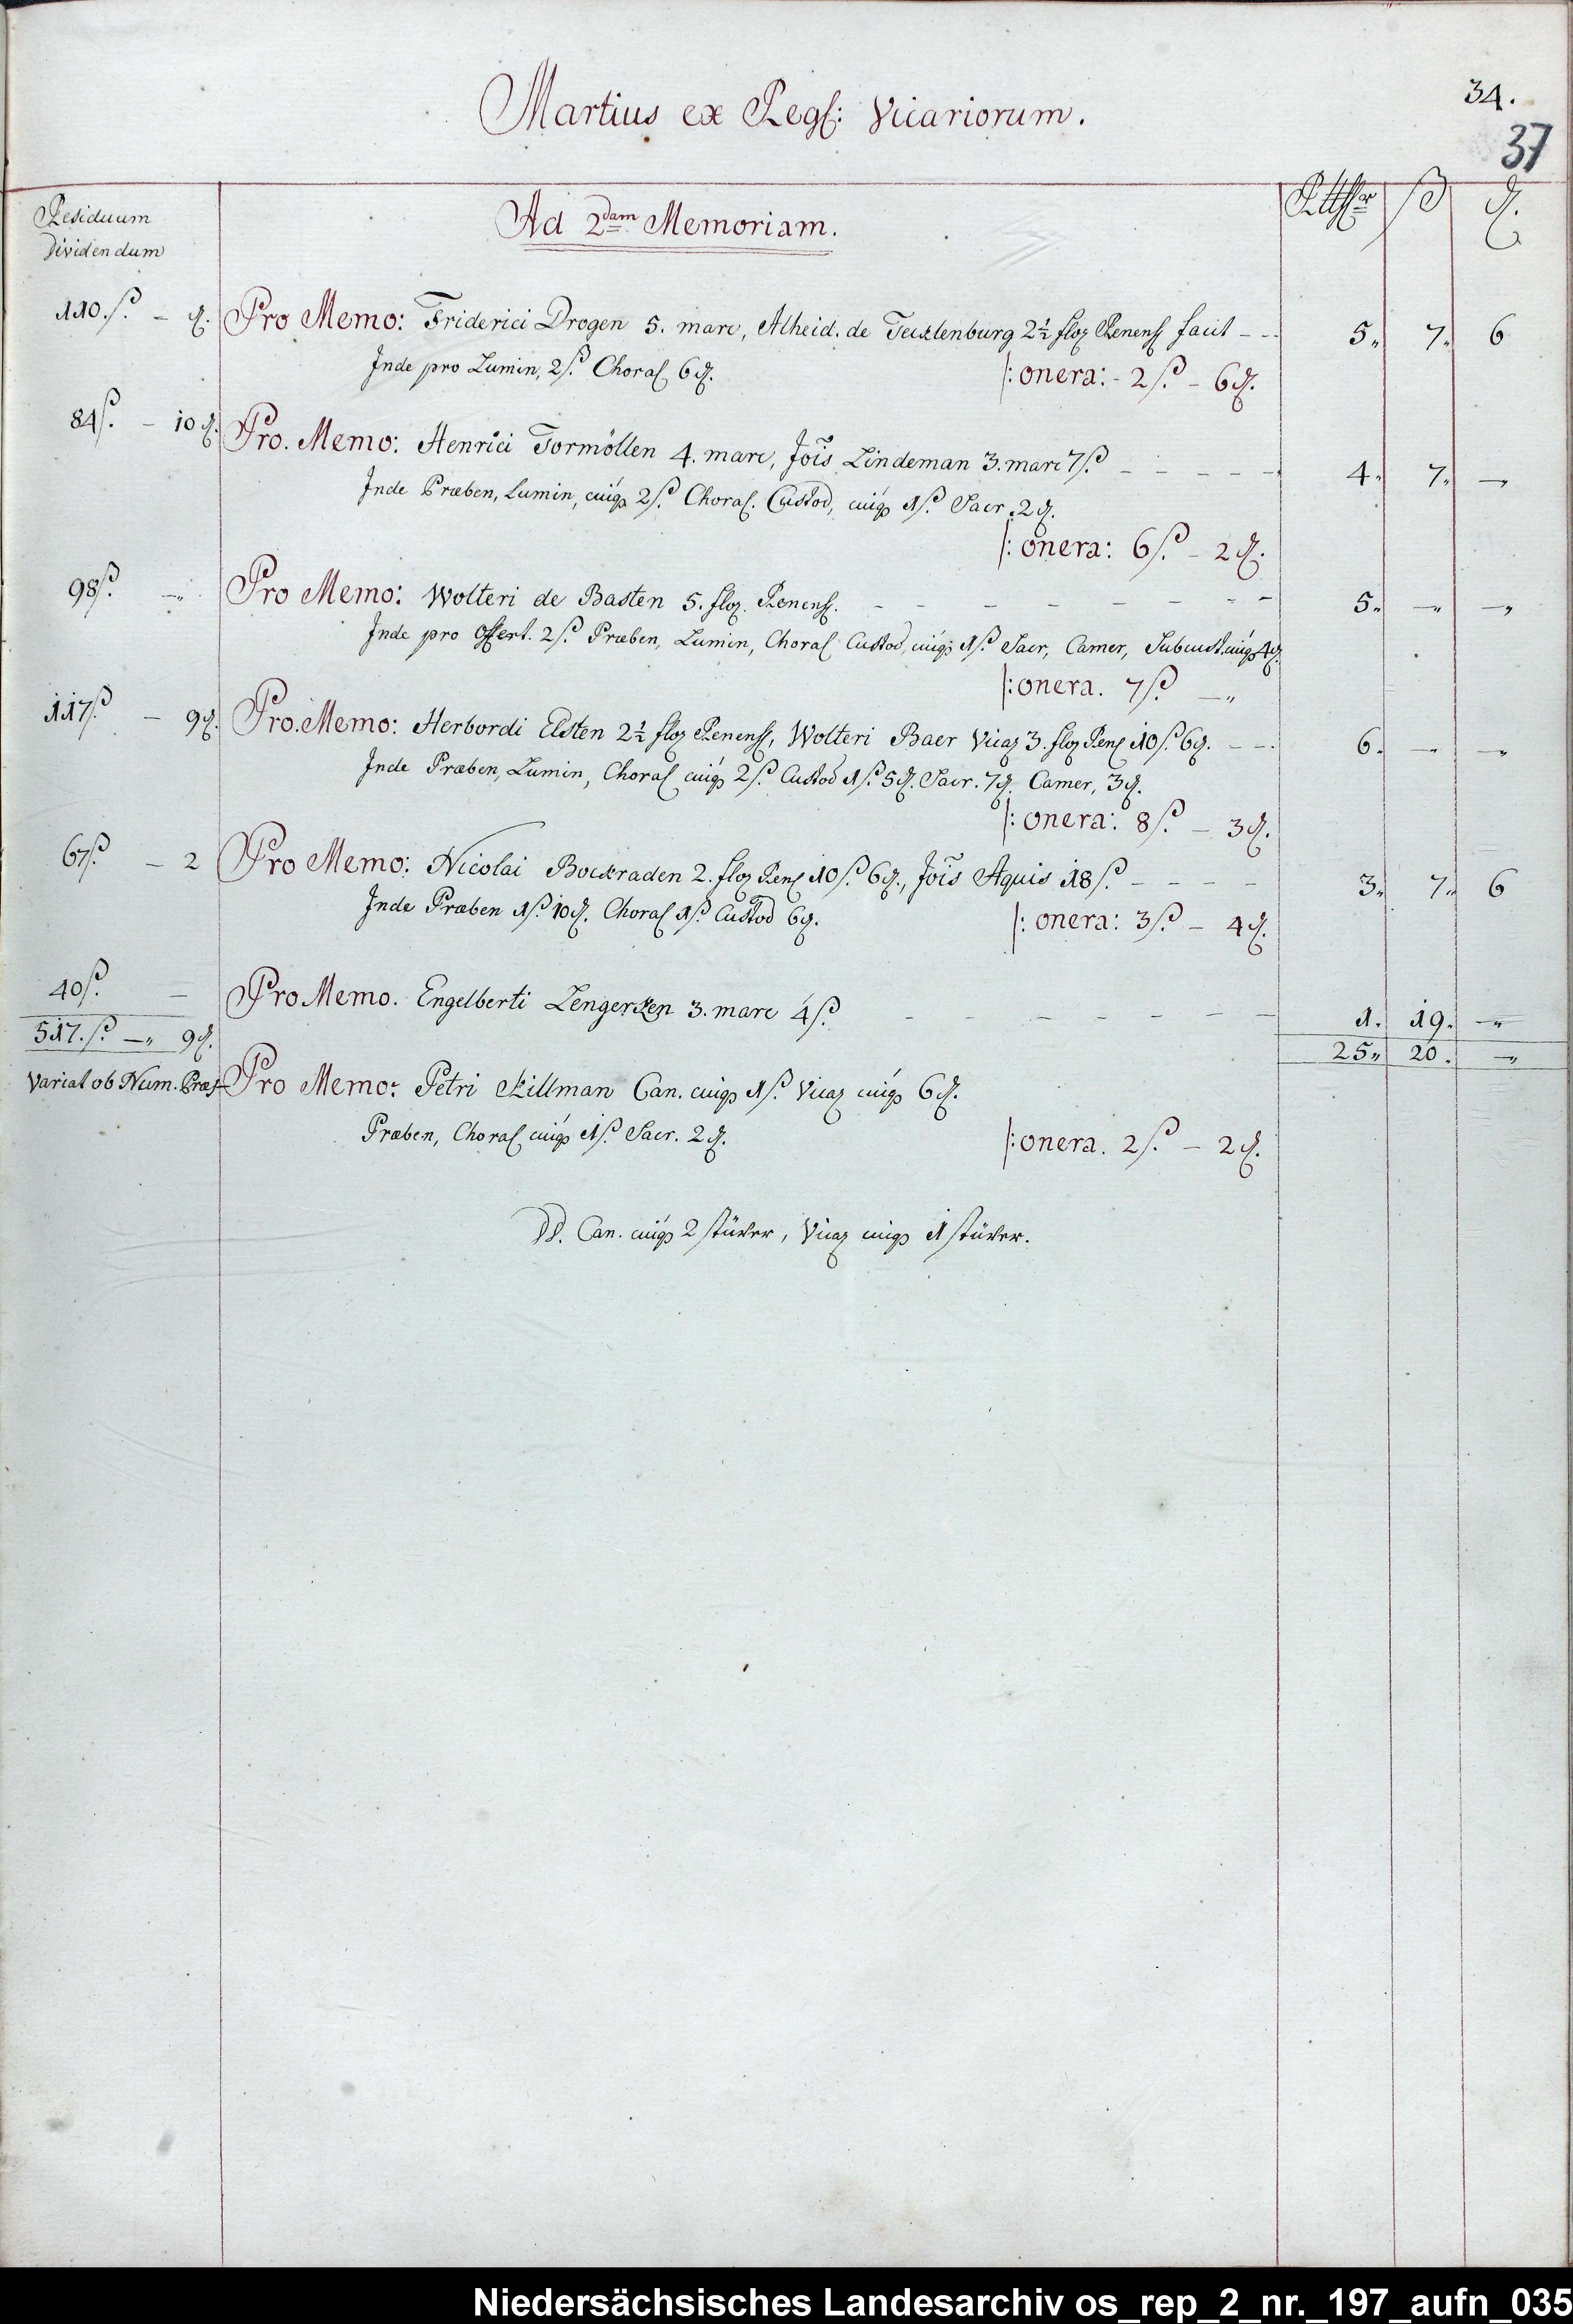 34.
37
Martius ex Regs: Vicariorum.
Residuum
Dividendum
Ad 2dam Memoriam.
Rthlr ß ₰.
110.ß. – ₰. Pro Memo: Friderici Drogen 5. marc, Alheid. de Tecklenburg 2½ flor Renens facit – – 5„ 7„ 6
Inde pro Lumin, 2ß. Choral 6₰. |: onera: - 2ß. – 6₰.
84ß. – 10₰. Pro. Memo: Henrici Tormöllen 4. marc, Jois Lindeman 3. marc 7ß. – – – – – 4„ 7„ –„
Inde Præben, Lumin, cuiq3 2ß. Choral. Custod, cuiq3 1ß. Sacr. 2₰.
|: onera: 6ß. – 2₰.
98ß. –„ Pro Memo: Wolteri de Basten 5. flor. Renens. – – – – – – – – 5„ –„ –„
Inde pro Offert. 2ß. Præben, Lumin, Choral Custod, cuiq3 1ß. Sacr, Camer, Subcust. cuiq3 4₰.
|: onera. 7ß. –„
117ß. – 9₰. Pro. Memo: Herbordi Elsten 2½ flor Renens, Wolteri Baer Vicar 3. flor Rens 10ß. 6₰. – – 6. –„ –„
Inde Præben, Lumin, Choral cuiq3 2ß. Custod 1ß. 5₰. Sacr. 7₰. Camer, 3₰.
|: onera: 8ß. – 3₰.
67ß. – 2 Pro Memo: Nicolai Bockraden 2. flor Rens 10ß. 6₰., Jois Aquis 18ß. – – – – 3„ 7„ 6
Inde Præben 1ß. 10₰. Choral 1ß. Custod 6₰. |: onera: 3ß. – 4₰.
40ß. – Pro Memo. Engelberti Lengerken 3. marc 4ß. – – – – – – – 1. 19. –„
517.ß. –„ 9₰. 25„ 20. –„
Variat ob Num. Præs– Pro Memo: Petri Killman Can. cuiq3 1ß. Vicar cuiq3 6₰.
Præben, Choral cuiq3 1ß. Sacr. 2₰. |: onera. 2ß. – 2₰.
DD. Can. cuiq3 2 stüver, Vicar cuiq3 1 stüver.
Niedersächsisches Landesarchiv os_rep_2_nr._197_aufn_035